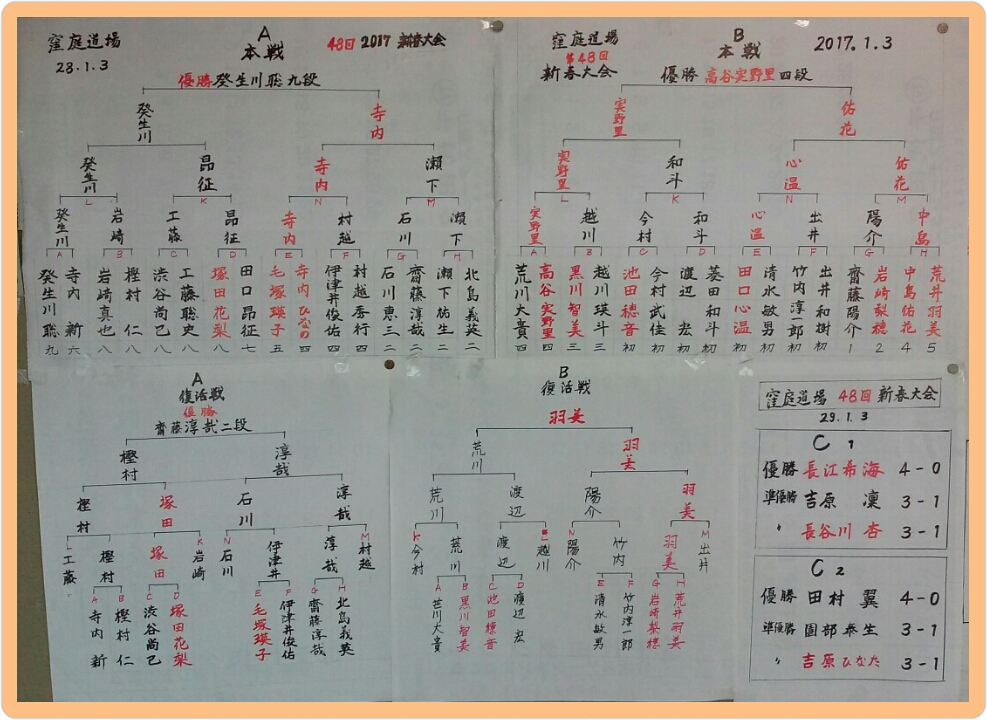 窪庭道場
28.1.3
A
本戦
48回 2017 新春大会
優勝 癸生川聡九段
癸生川 寺内
癸生川 昂征 寺内 瀬下
L K N M
癸生川 岩崎 工藤 昂征 寺内 村越 石川 瀬下
A B C D E F G H
癸生川聡九 寺内新六 岩崎真也八 樫村仁八 渋谷尚己八 工藤聡史八 塚田花梨八 田口昂征七 毛塚瑛子五 寺内ひなの四 伊津井俊佑四 村越孝行四 石川恵三二 齋藤淳哉二 瀬下祐生二 北島義英二
窪庭道場
第48回
新春大会
B
本戦
2017.1.3
優勝 高谷実野里四段
実野里 佑花
実野里 和斗 心温 佑花
L K N M
実野里 越川 今村 和斗 心温 出井 陽介 中島
A B C D E F G H
荒川大貴四 高谷実野里四 黒川智美三 越川瑛斗三 池田穂音初 今村武佳初 渡辺宏初 菱田和斗初 田口心温初 清水敏男初 竹内淳一郎初 出井和樹初 齋藤陽介1 岩崎梨穂2 中島佑花4 荒井羽美5
A
復活戦
優勝
齋藤淳哉二段
樫村 淳哉
樫村 塚田 石川 淳哉
L K N M
工藤 樫村 塚田 岩崎 石川 伊津井 淳哉 村越
A B C D E F G H
寺内新 樫村仁 渋谷尚己 塚田花梨 毛塚瑛子 伊津井俊佑 齋藤淳哉 北島義英
B
復活戦
羽美
荒川 羽美
荒川 渡辺 陽介 羽美
K N M
今村 荒川 渡辺 越川 陽介 竹内 羽美 出井
A B C D E F G H
荒川大貴 黒川智美 池田穂音 渡辺宏 清水敏男 竹内淳一郎 岩崎梨穂 荒井羽美
窪庭道場 48回 新春大会
29.1.3
C1
優勝 長江希海 4-0
準優勝 吉原 凜 3-1
〃 長谷川 杏 3-1
C2
優勝 田村 翼 4-0
準優勝 園部泰生 3-1
〃 吉原ひなた 3-1